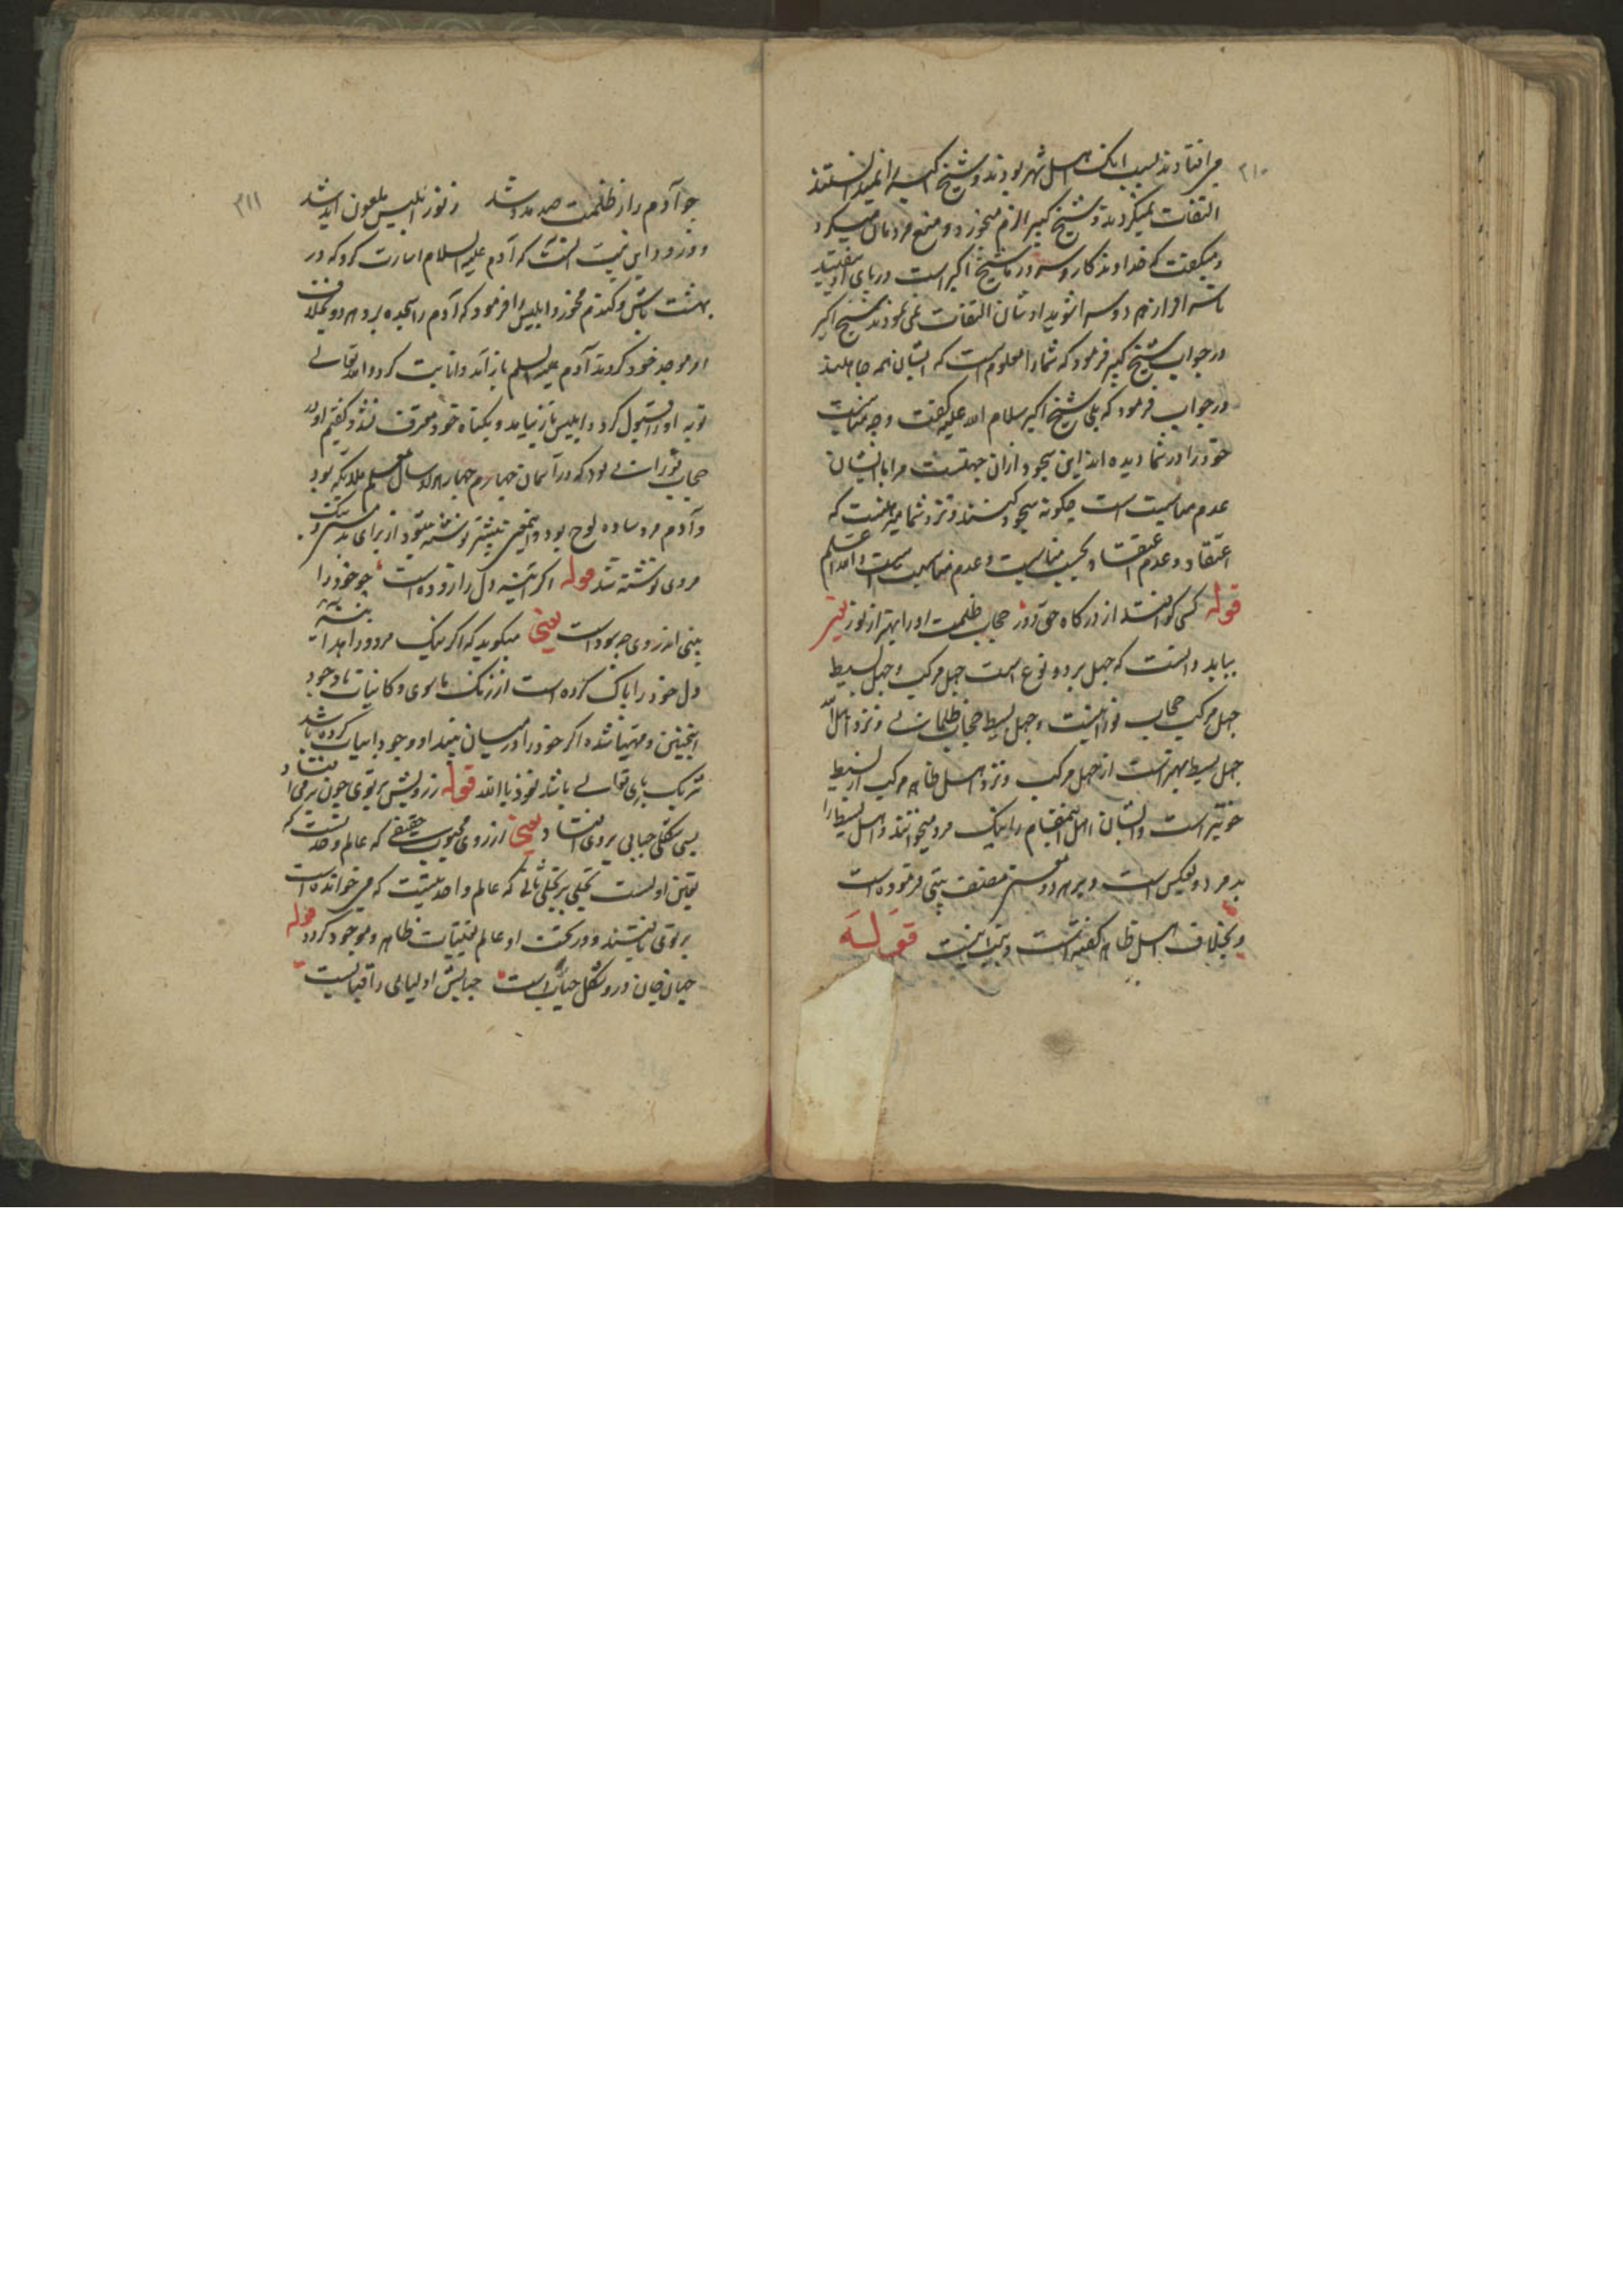 ۳۱۰
می افتادند بسبب انک اهل شهر بودند و شیخ اکبر را نمیدانستند
التفات نمیکردند و شیخ کبیر الزم میخورد و منع مردمان میکرد
و میکفت که خداوندکار و سرور ما شیخ اکبر است در پای او بیفتید
التفات نمی نمودند شیخ اکبر
در جواب شیخ کبیر فرمود که شما را معلوم است که ایشان همه جاهلند
در جواب فرمود که بلی شیخ اکبر سلام الله علیه کفت وجه مناسبت
خود را در شما دیده اند این سجود ازان جهتست مرا با ایشان
عدم مناسبت است چکونه سجود کنند و نزد شما میدانست که
اعتقاد و عدم اعتقاد بحسب مناسبت و عدم مناسبت است والله اعلم
قوله کسی کو افتد از درکاه حق دور حجاب ظلمت او را بهتر از نور یعنی
بباید دانست که جهل بر دو نوع است جهل مرکب و جهل بسیط
جهل مرکب حجاب نورانیست و جهل بسیط حجاب ظلمانی و نزد اهل الله
جهل بسیط بهتر است از جهل مرکب و نزد اهل ظاهر مرکب از بسیط
خوبتر است و ایشان اهل این مقام را نیک مرد میخوانند و اهل بسیط را
بد مرد و بعکس است و بر هر دو معنی مصنف بیتی فرموده است
و بخلاف اهل ظاهر کفته است و بیت اینست قوله
۳۱۱
چو آدم را ز ظلمت صد مدد شد ز نور ابلیس ملعون ابد شد
ورود این بیت آنست که آدم علیه السلام اشارت کرد که در
بهشت باش و کندم مخور و ابلیس را فرمود که آدم را سجده بر و هر دو بخلاف
امر موجد خود کردند آدم علیه السلم باز آمد و انابت کرد و الله تعالی
توبه او را قبول کرد و ابلیس باز نیامد و بکناه خود معترف نشد و کفتیم او را
حجاب نورانی بود که در آسمان چهارم چهار هزار سال معلم ملایکه بود
و آدم مرد ساده لوح بود و این معنی بیشتر نوشته بود از برای
مروی نوشته شد قوله اکر آیینه دل را زدوده است چو خود را
بیند اندروی چه بود است یعنی میکوید که اکر نیک مرد و زاهد آیینه
دل خود را پاک کرده است از زنک ماسوی و کاینات تا وجود
اینچنین و مهیا شده اکر خود را در میان بیند او وجود اثبات کرده باشد
شریک باری تعالی باشد نعوذ بالله قوله ز رویش پرتوی چون بر می افتاد
بسی شکل حبابی بر وی افتاد یعنی از روی محبوب حقیقی که عالم وحدتست که
تعین اولست تجلی بر تجلی ثانی که عالم واحدیتست که می خوانده است
پرتوی تا بیند و در تحت او عالم تعینات ظاهر و موجود کردد قوله
جهان جان درو شکل حبابست حبابش اولیایی را قبابست